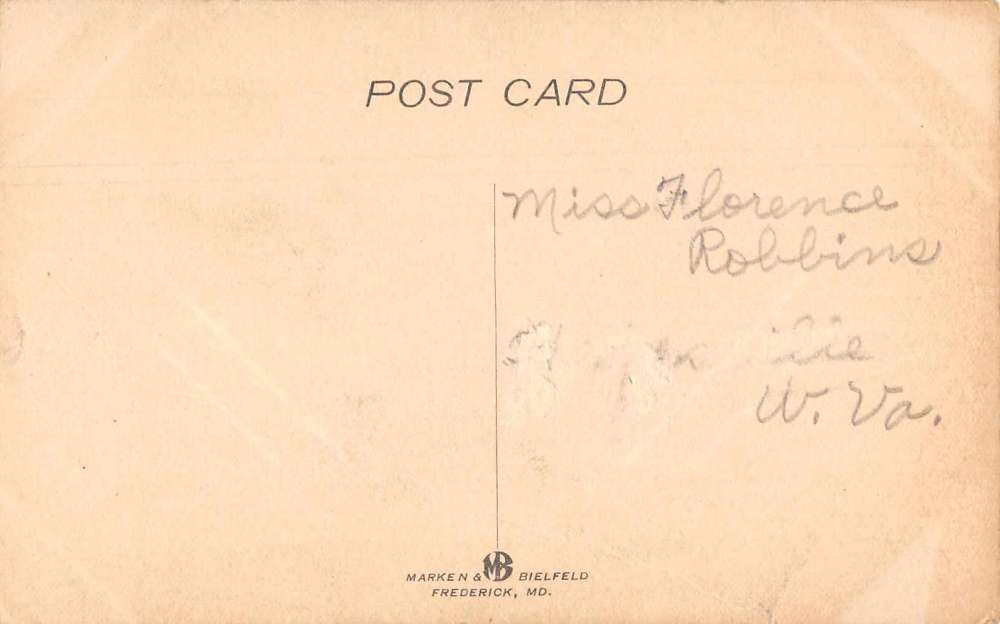 POST CARD
Miss Florence
Robbins
W. Va.
MB
MARKEN & BIELFELD
FREDERICK, MD.